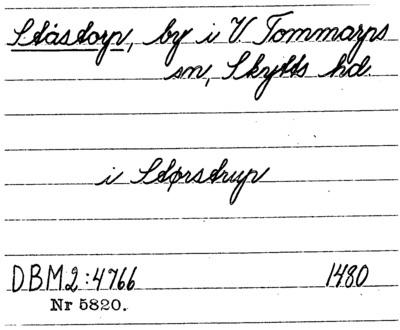 Ståstorp, by i V Tommarps
sn, Skytts hd.
i Størstrup
DBM2:4766 1480
Nr 5820.